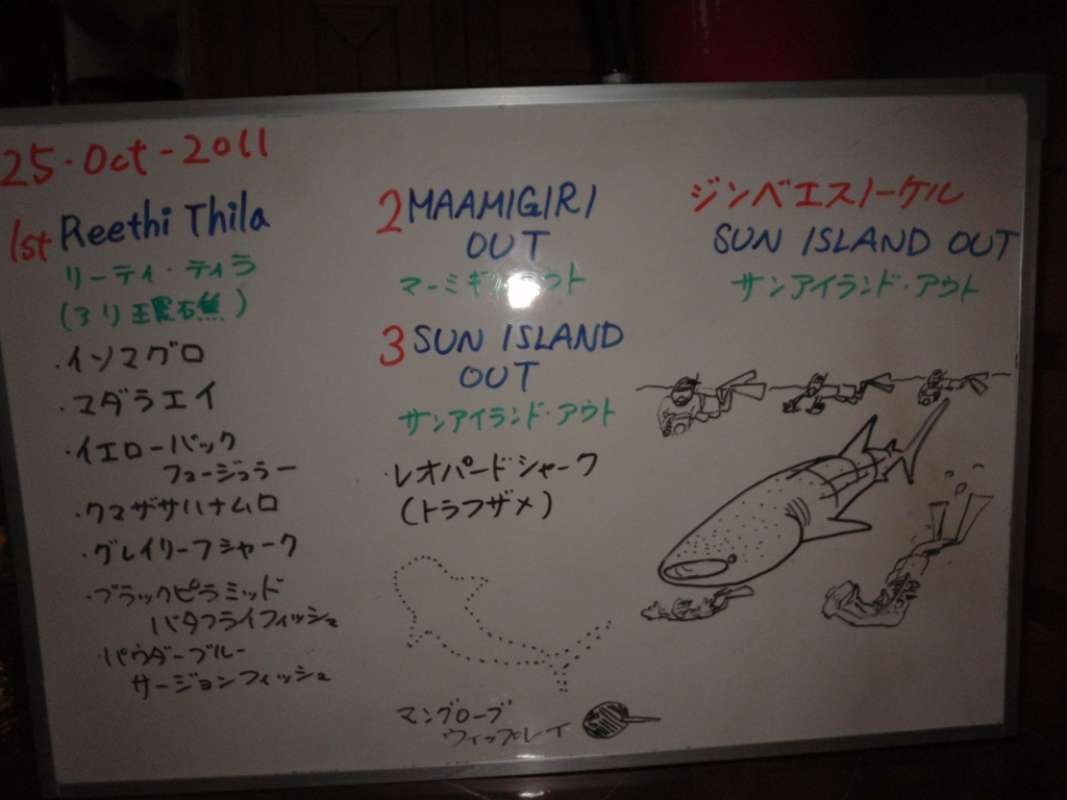 25・Oct-2011
1st Reethi Thila
リーティ・ティラ
・イソマグロ
・マダラエイ
・イエローバック
フュージュラー
・クマザサハナムロ
・グレイリーフシャーク
・ブラックピラミッド
バタフライフィッシュ
・パウダーブルー
サージョンフィッシュ
2 MAAMIGIRI
OUT
3 SUN ISLAND
OUT
サンアイランド・アウト
・レオパードシャーク
(トラフザメ)
マングローブ
ウィップレイ
ジンベエスノーケル
SUN ISLAND OUT
サンアイランド・アウト